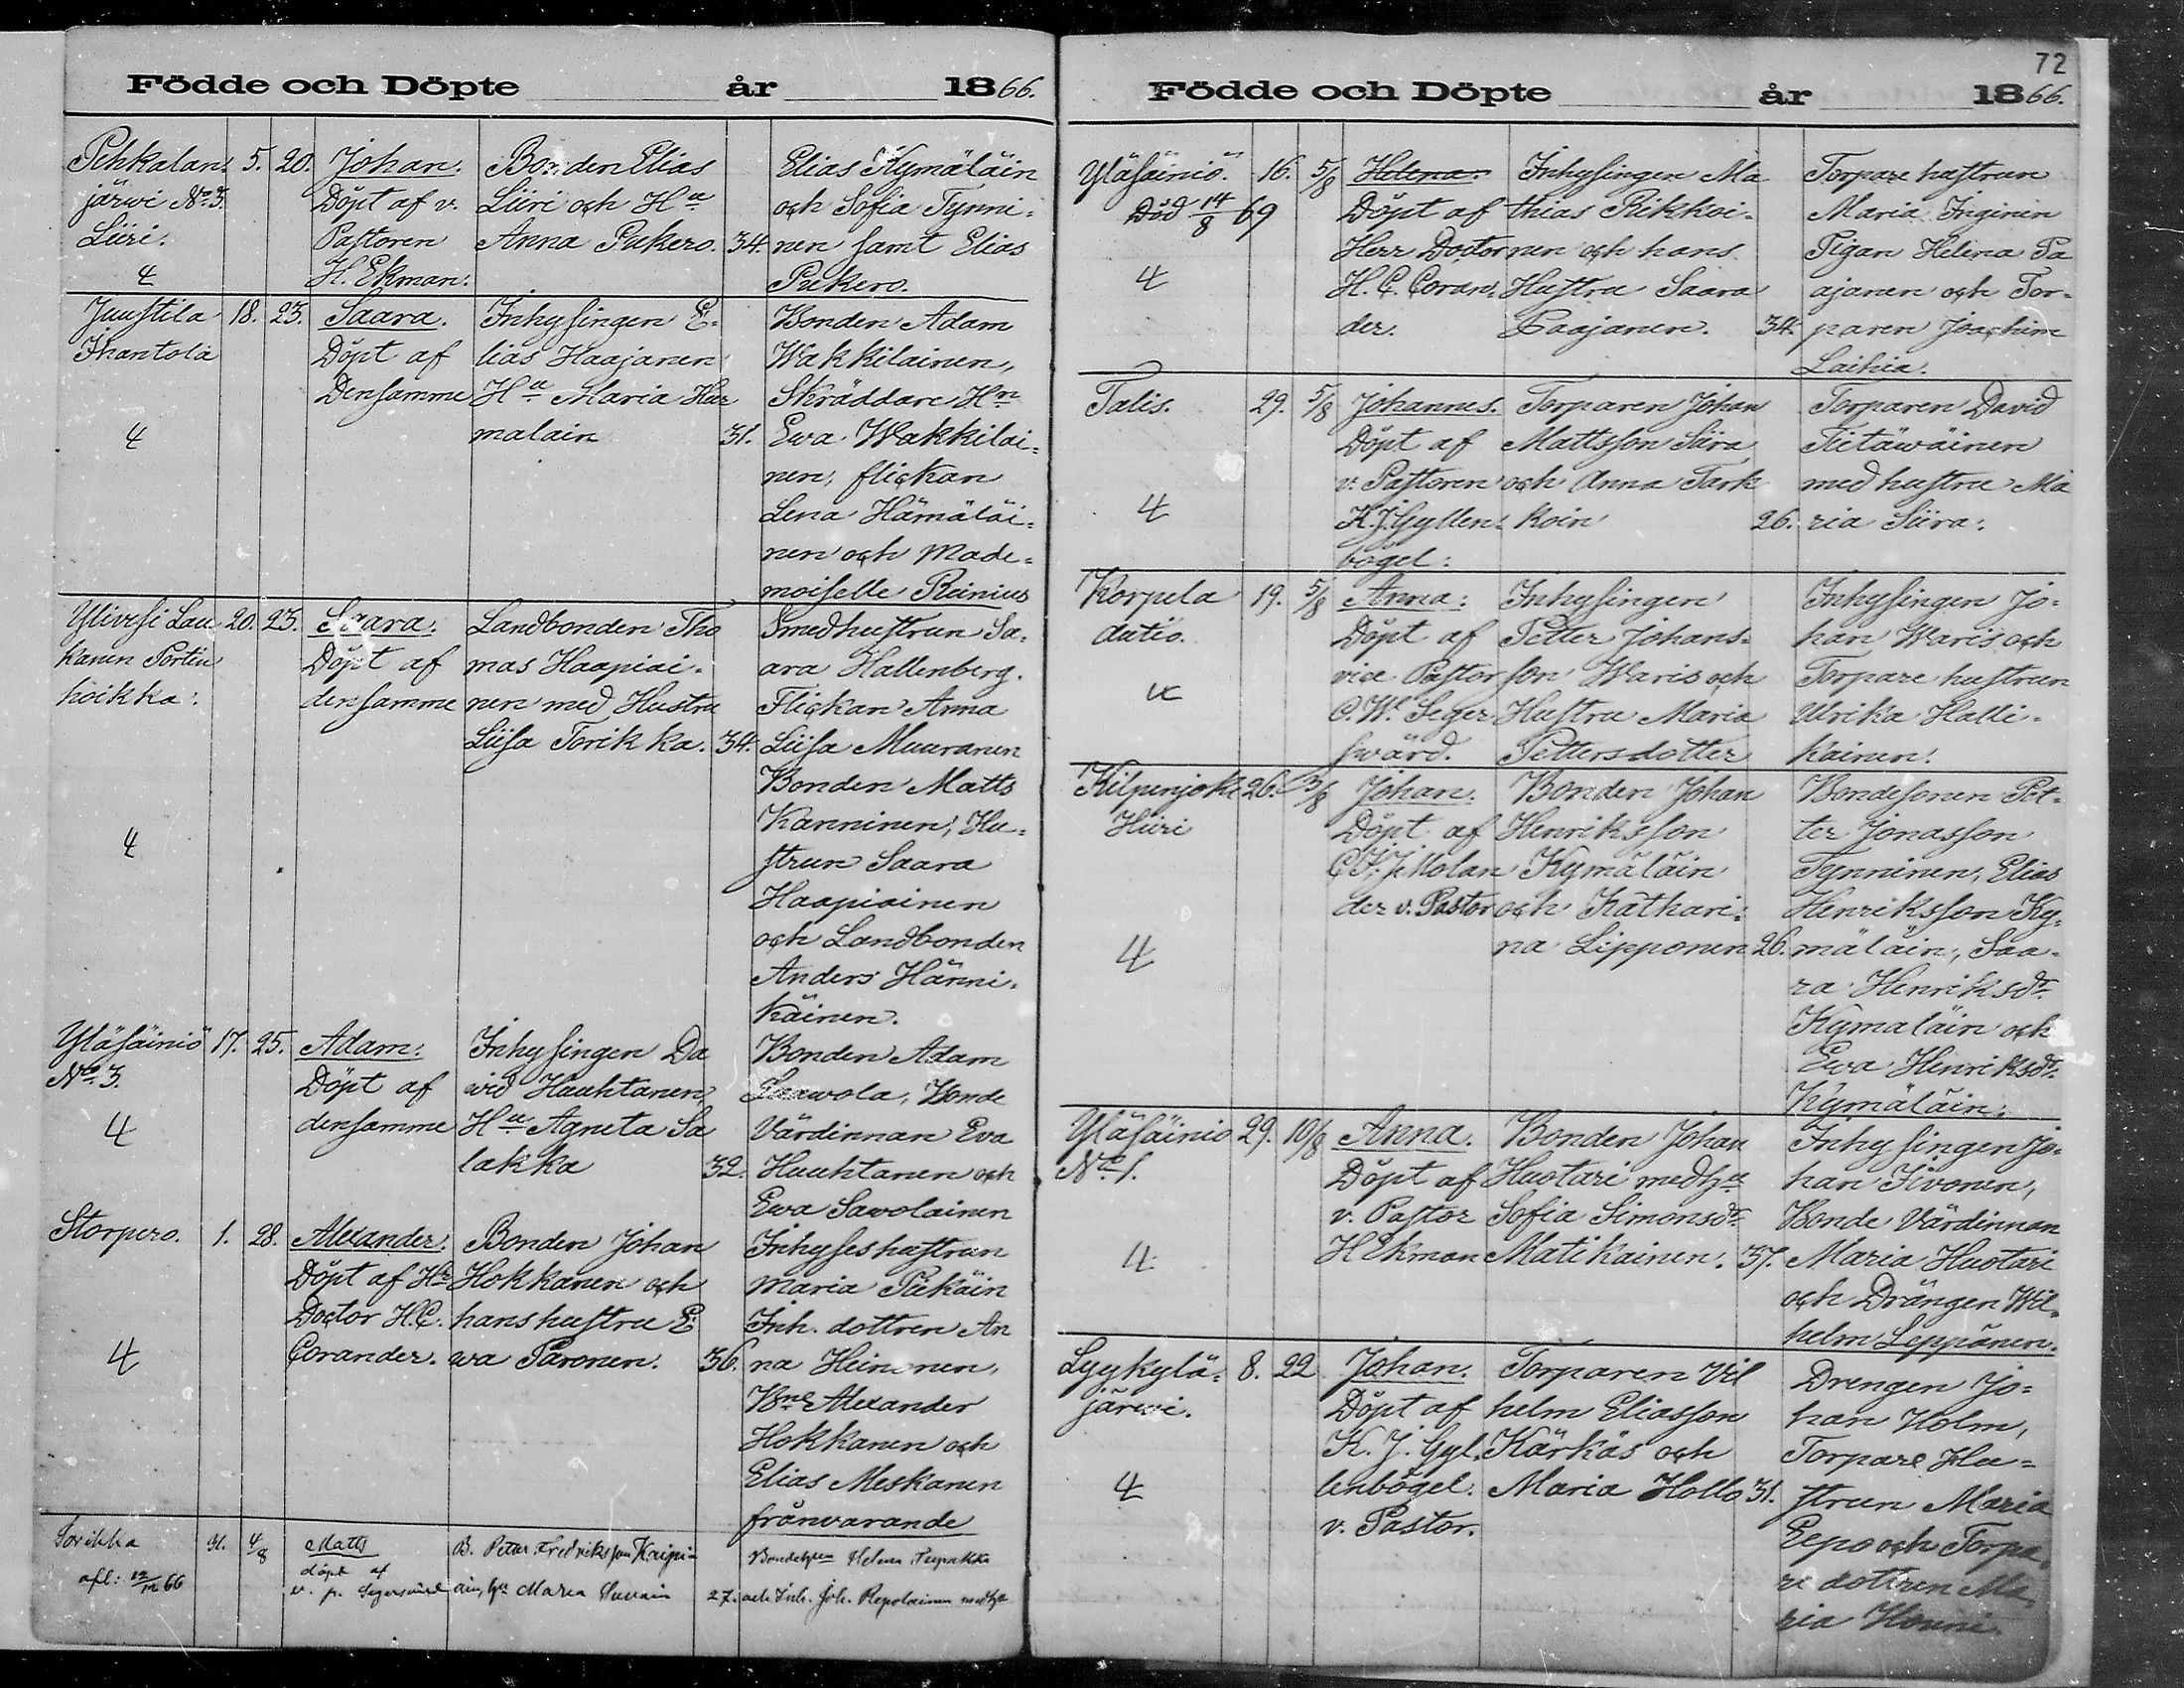 Födde och Döpte år 1866.
Pehkalan-
järwi No 3.
Liiri.
4
5. 20.
Johan.
Döpt af v.
Pastoren
H. Ekman.
Bonden Elias
Liiri och Hu
Anna Pukero. 34.
Elias Kymäläin
och Sofia Tynni-
nen samt Elias
Pukero.
Juustila
Ihantola
4
18. 23.
Saara.
Döpt af
Densamme
Inhysingen E-
lias Haajanen
Hu Maria Har
malain 31.
Bonden Adam
Wakkilainen,
Skräddare Hn
Ewa Wakkilai-
nen, flickan
Lena Hämäläi-
nen och Made-
moiselle Reinius
Ylivesi Lau
kanen Portin
hoikka.
4
20. 23.
Saara.
Döpt af
densamme
Landbonden Tho
mas Haapiai-
nen med Hustru
Liisa Torikka. 34.
Smedhustrun Sa-
ara Hallenberg.
Flickan Anna
Liisa Muuranen
Bonden Matts
Kanninen, Hu-
strun Saara
Haapiainen
och Landbonden
Anders Hänni-
käinen.
Yläsäiniö
No 3.
4
17. 25.
Adam.
Döpt af
densamme
Inhysingen Da
wid Hauhtanen,
Hu Agneta Sa
lakka 32.
Bonden Adam
Sawola, Bonde
Värdinnan Eva
Hauhtanen och
Ewa Sawolainen
Storpero.
4
1. 28.
Alexander.
Döpt af Hr
Doctor H.C.
Corander.
Bonden Johan
Hokkanen och
hans hustru E
wa Paronen. 36.
Inhyseshustrun
Maria Pukäin
Inh. dottren An
na Heinonen,
Bne Alexander
Hokkanen och
Elias Meskanen
frånvarande
Sorikka
afl: 12/12 66
31. 4/8
Matts
döpt af
v. p. Segersvärd
B. Petter Fredriksson Kaipi-
ain, hu Maria 27.
Helena
och Inh. Joh. Repolainen med hu
72
Födde och Döpte år 1866.
Yläsäiniö.
Död 14/8 69
4
16. 5/8
Helena.
Döpt af
Herr Doctor
H. C. Coran-
der.
Inhysingen Ma
thias Pikkoi-
nen och hans
Hustru Saara
Paajanen. 34.
Torpare hustrun
Maria Inginen
Pigan Helena Pa
ajanen och Tor-
paren Joachim
Laihia.
Talis.
4
29. 5/8
Johannes.
Döpt af
v. Pastoren
K.J. Gyllen-
bögel.
Torparen Johan
Mattsson Siira
och Anna Tark
koin 26.
Torparen David
Tietäwäinen
med hustru Ma
ria Siira.
Korpela
dutio.
4
19. 5/8
Anna.
Döpt af
vice Pastor
C. W. Seger
swärd.
Inhysingen
Petter Johans-
son Waris och
Hustru Maria
Pettersdotter
Inhysingen Jo-
han Waris och
Torpare hustrun
Ulrika Halli-
kainen.
Kilpenjoki
Hiiri
4
26. 5/8
Johan.
Döpt af
C F. J. Molan
der v. Pastor
Bonden Johan
Henriksson
Kymäläin
och Kathari-
na Lipponen 26.
Bondesonen Pet-
ter Jonasson
Tynninen, Elias
Henriksson Ky-
mäläin, Saa-
ra Henriksdr.
Kymäläin och
Ewa Henriksdr.
Kymäläin.
Yläsäiniö
No 1.
4
29. 10/8
Anna.
Döpt af
v. Pastor
H Ekman
Bonden Johan
Huotari med hu
Sofia Simonsdr.
Matikainen. 37.
Inhysingen Jo-
han Iivonen,
Bonde Värdinnan
Maria Huotari
och Drängen Wil-
helm Leppänen.
Lyykylä-
järwi.
4
8. 22
Johan.
Döpt af
K. J. Gyl-
lenbögel.
v. Pastor.
Torparen Vil
helm Eliasson
Kärkäs och
Maria Hollo 31.
Drengen Jo-
han Holm,
Torpare Hu-
strun Maria
Eepo och Torpa-
re dottren Ma-
ria Houni.